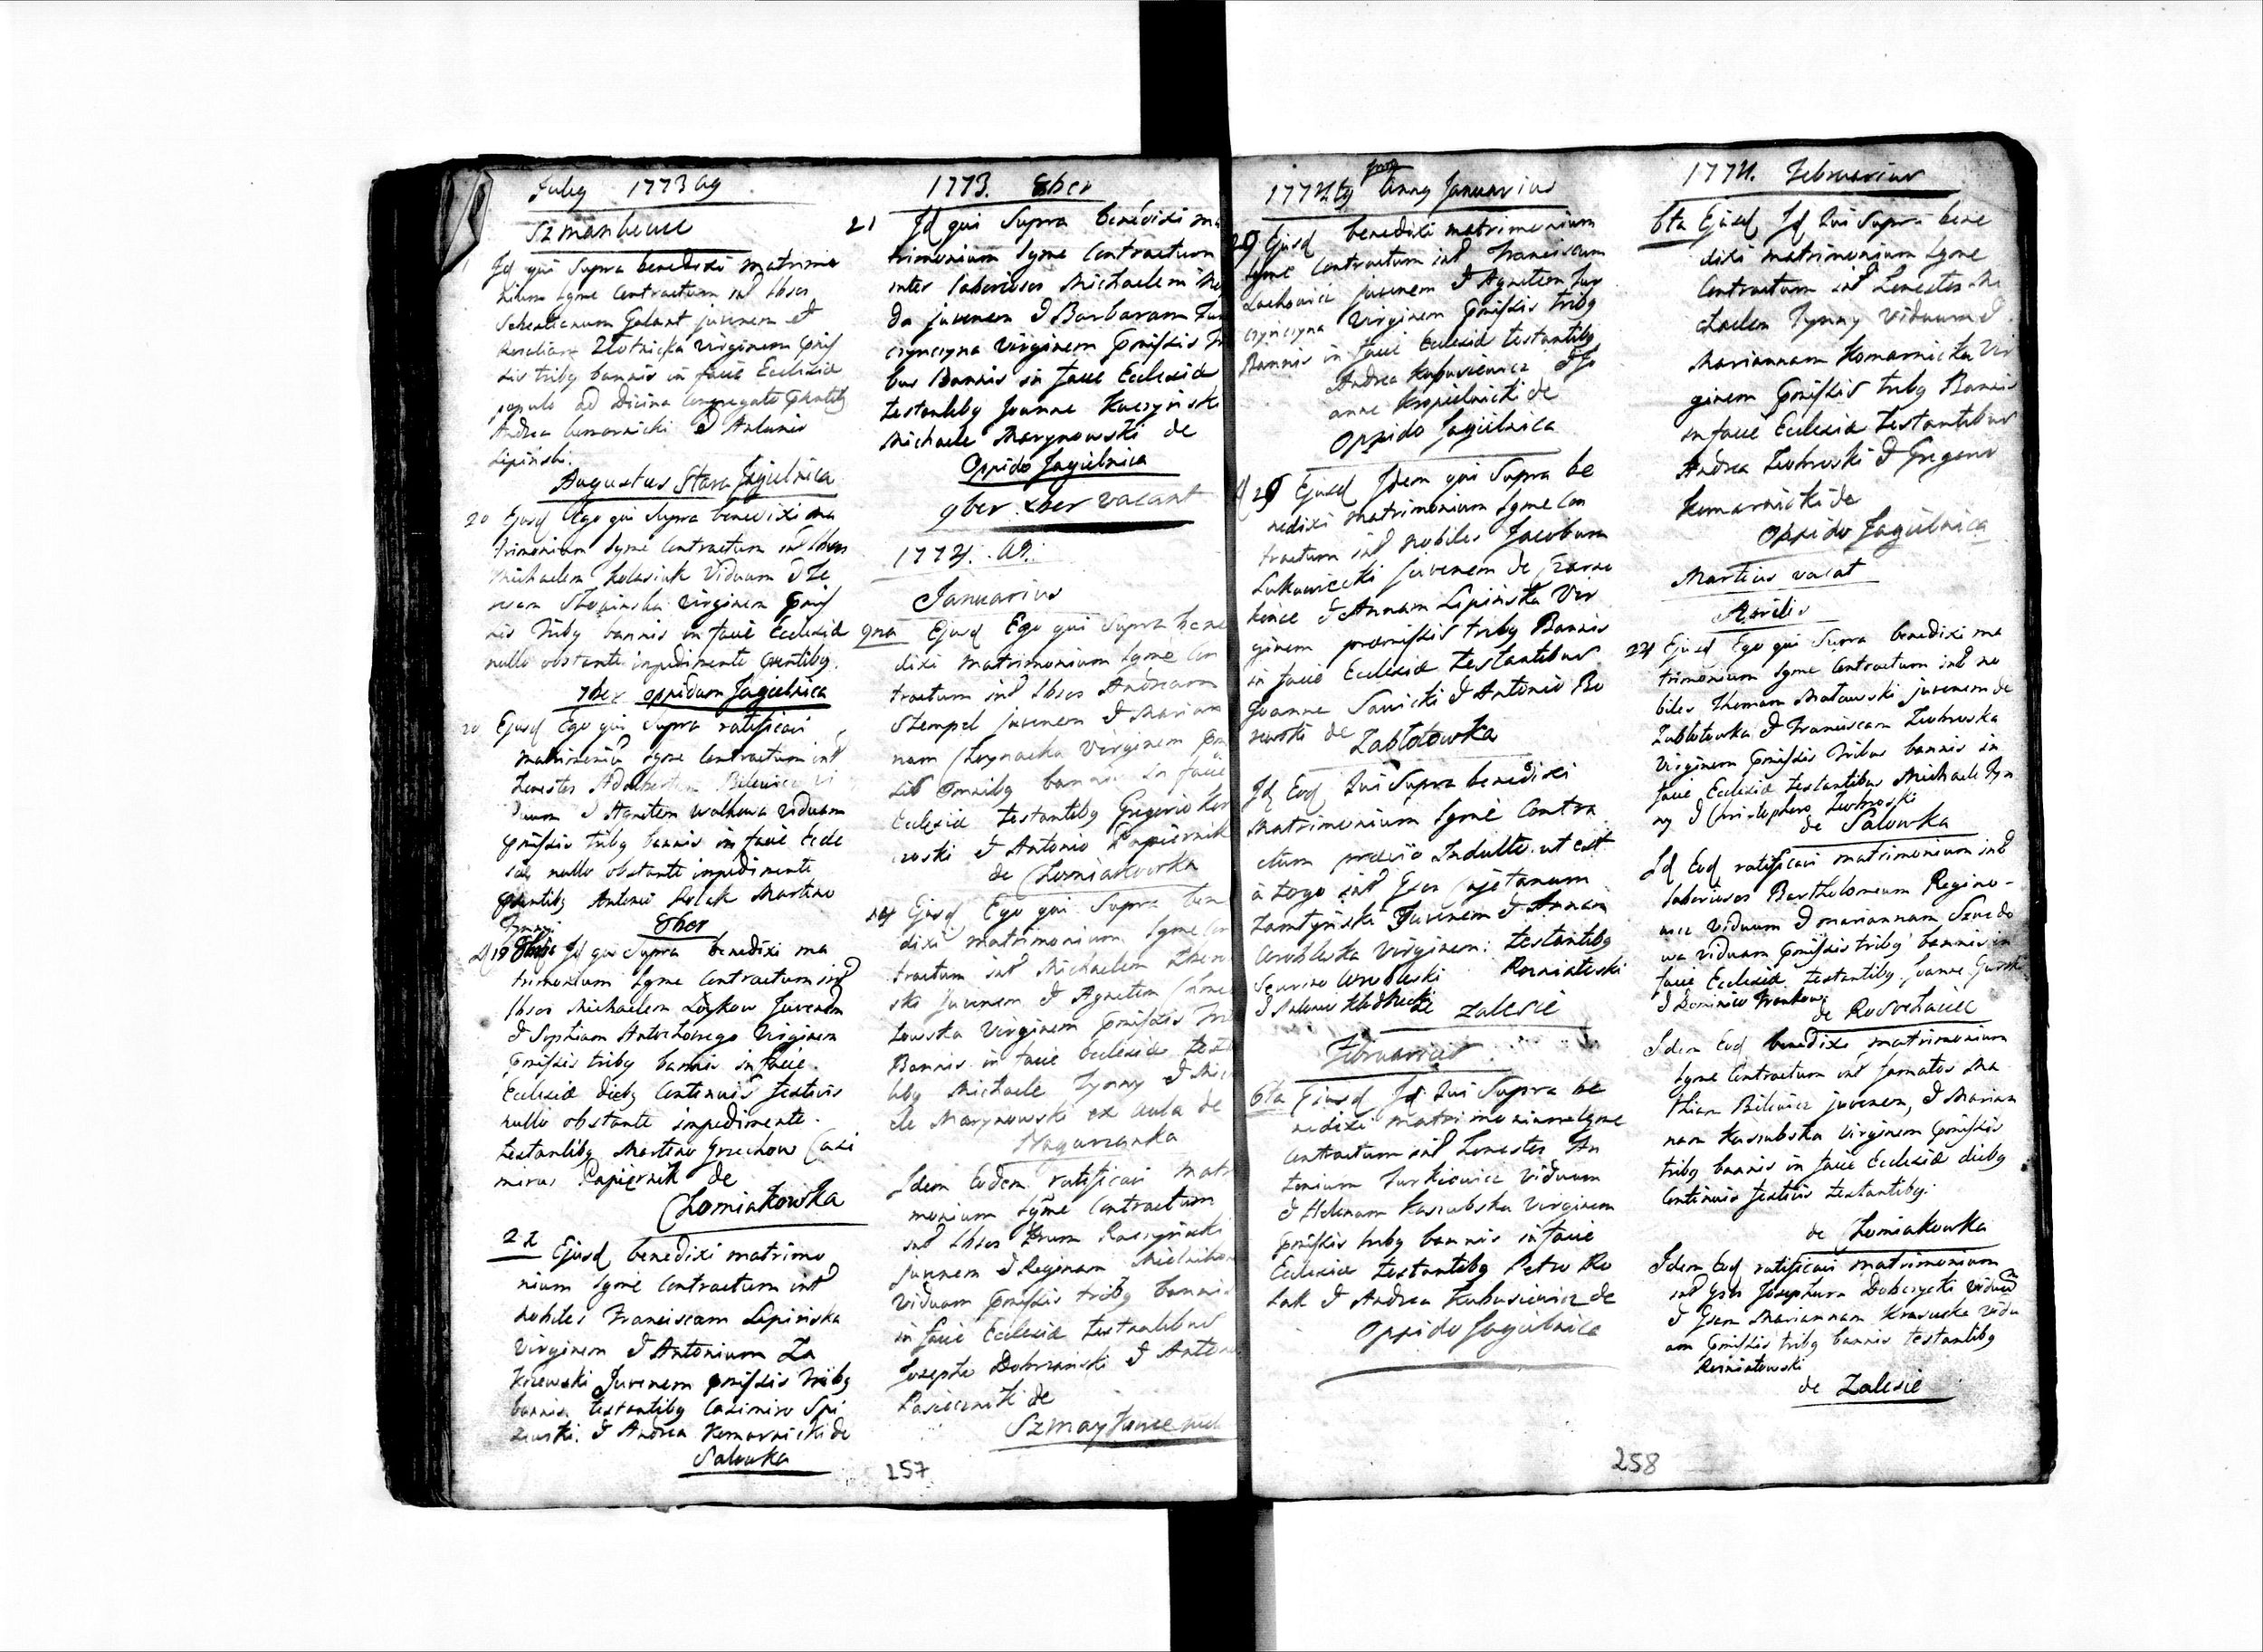 July 1773 ag
Szmankowce
Id qui Supra benedixi matrimo
nium lgme Contractum int lbsos
Sebastianum Galant juvenem et
Rosaliam Zlotnicka virginem pmis
sis tribq bannis in facie Ecclesia
populo ad Divina Congregato pntibq
Andrea Comarnicki & Antonio
Lipinski.
Augustus Stara Jagielnica
20 Ejusd Ego qui supra benedixi ma
trimonium lgme Contractum int lbsos
Michaelem Kolasiuk Viduum & Te
resam virginem pmis
sis tribq bannis in facie Ecclesia
nullo obstante impedimento pntibq.
7ber oppidum Jagielnica
20 Ejusd Ego qui Supra ratificavi
matrimoniu lgme Contractum int
honestos Adalbertum Bilewicz vi
duum & Agnetem Walkowa viduam
pmissis tribq bannis in facie Eccle
sia nullo obstante impedimento
pntibq Antonio Polak Martino
Tymny
8ber
D 19 8bris Id qui Supra benedixi ma
trimonium lgme Contractum int
lbsos Michaelem Juvenem
& Sophiam Virginem
pmissis tribq bannis in facie
Ecclesia diebq Continuis festivis
nullo obstante impedimento.
testantibq Martino Grzechow Casi
miro Papiernik de
Chomiakowka
22 Ejusd benedixi matrimo
nium lgme Contractum int
Nobiles Franciscam Lipinska
Virginem & Antonium Za
krzewski Juvenem pmissis tribq
bannis testantibq Casimiro Spi
& Andrea Komarnicki de
Salowka
1773. 8ber
21 Id qui Supra benedixi ma
trimonium lgme Contractum
inter laboriosos Michaelem
da juvenem & Barbaram Fur
czynczyna virginem pmissis tri
bus Bannis in facie Ecclesia
testantibq Joanne Kuczynski
Michaele Marynowski de
Oppido Jagielnica
9ber xber vacant
1774. A°.
Januarius
9na Ejusd Ego qui supra bene
dixi matrimonium lgme Con
tractum int lbsos Andream
Stempel juvenem & Marian
nam virginem pm
sis omnibq bannis in facie
Ecclesia testantibq Gregorio
& Antonio Papiernik
de Chomiakowka
24 Ejusd Ego qui Supra bene
dixi matrimonium lgme Con
tractum int Michaelem
ski juvenem & Agnetem
towska virginem pmissis tri
Bannis in facie Ecclesia testa
tibq Michaele Tymny & Mich
ele Marynowski ex aula de
Nagorzanka
Idem Eodem ratificavi Matri
monium lgme Contractum
int lbsos
juvenem & Reginam Mielnikowa
viduam pmissis tribq bannis
in facie Ecclesia testantibus
Josepho Dobrzanski & Antonio
Pasiecznik de
Szmaykowce
257
1774tq Anny Januarius
29 Ejusd benedixi matrimonium
lgme Contractum int Franciscum
Lachowicz juvenem & Agnetem Fur
czynczyna Virginem pmissis tribq
Bannis in facie Ecclesia testantibq
Andrea Kubasiewicz & Jo
anne Kropielnicki de
Oppido Jagielnica
D 29 Ejusd Idem qui Supra be
nedixi matrimonium lgme Con
tractum int nobiles Jacobum
Lukawiecki juvenem de Czarno
konce & Annam Lipinska Vir
ginem præmissis tribq Bannis
in facie Ecclesia testantibus
Joanne Sawicki & Antonio Bo
rowski de Zabłotowka
Id Eod Qui Supra benedixi
Matrimonium lgme Contra
ctum prævio Indulto ut est
à tergo int Gsos Cajetanum
Zamłynski Juvenem & Annam
Wroblewska Virginem: testantibq
Severino Wroblewski Rozniatowski
& Antonio Kladnicki Zalesie
Februarius
6ta Ejusd Id Qui Supra be
nedixi matrimonium lgme
Contractum int honestos An
tonium Jurkiewicz Viduum
& Helenam Kaszubska Virginem
pmissis tribq bannis in facie
Ecclesia testantibq Petro Po
lak & Andrea Kubasiewicz de
Oppido Jagielnica
1774. Februarius
6ta Ejusd Id Qui Supra bene
dixi matrimonium lgme
Contractum int honestos Mi
chaelem Tymny Viduum &
Mariannam Komarnicka Vir
ginem pmissis tribq Bannis
in facie Ecclesia testantibus
Andrea Zubrowski & Gregorio
Komarnicki de
Oppido Jagielnica
Martius vacat
Aprilis
24 Ejusd Ego qui Supra benedixi ma
trimonium lgme Contractum int no
biles Thomam Matowski juvenem de
Zabłotowka & Franciscam Zubrowska
Virginem pmissis tribus bannis in
facie Ecclesia testantibus Michaele Tym
ny & Christophoro Zubrowski
de Salowka
Id Eod ratificavi matrimonium int
laboriosos Bartholomeum Regino-
wicz viduum & mariannam Szwedo
wa viduam pmissis tribq bannis in
facie Ecclesia testantibq Joanne Gurski
& Dominico Frankow
de Rosochaciec
Idem Eod benedixi matrimonium
lgme Contractum int famatos Ma
thiam Bilewicz juvenem, & Marian
nam Kaszubska Virginem pmissis
tribq bannis in facie Ecclesia diebq
Continuis festivis testantibq.
de Chomiakowka
Idem Eod ratificavi matrimonium
int Gsos Josephum Dobczycki viduum
& Gsam Mariannam Krasucka vidu
am pmissis tribq bannis testantibq
Rozniatowski
de Zalesie
258